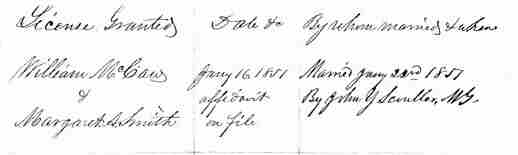 License Granted
Date &c
By whom married & when
William McCaw
&
Margaret A Smith
Jany 16 1851
affidavit
on file
Married Jany 23rd 1851
By John Y Scouller, MG.